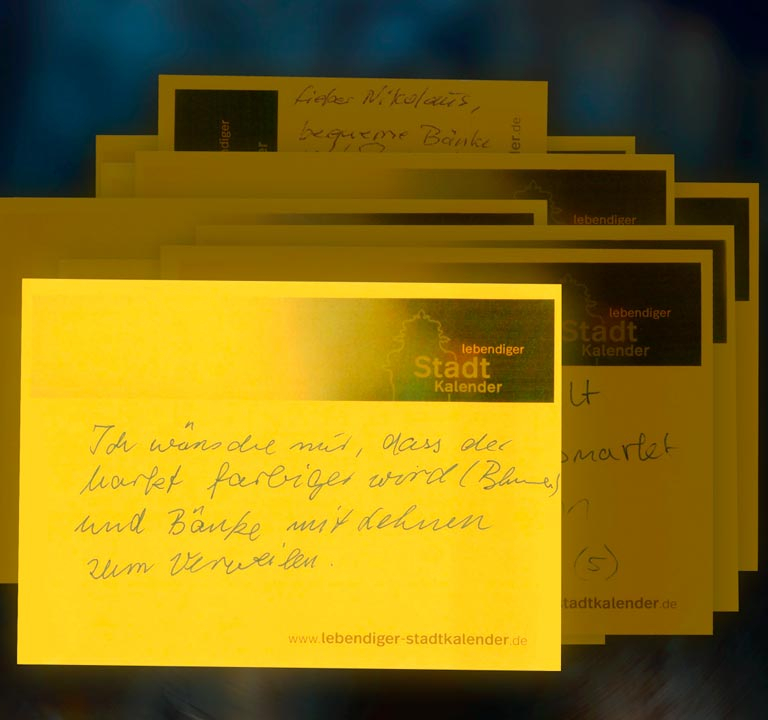 Lieber Nikolaus,
bequeme Bänke
lebendiger
lebendiger
Stadt
Kalender
lt
smarkt
(5)
stadtkalender.de
lebendiger
Stadt
Kalender
Ich wünsche mir, dass der
Markt farbiger wird (Blumen)
und Bänke mit Lehnen
zum Verweilen.
www.lebendiger-stadtkalender.de